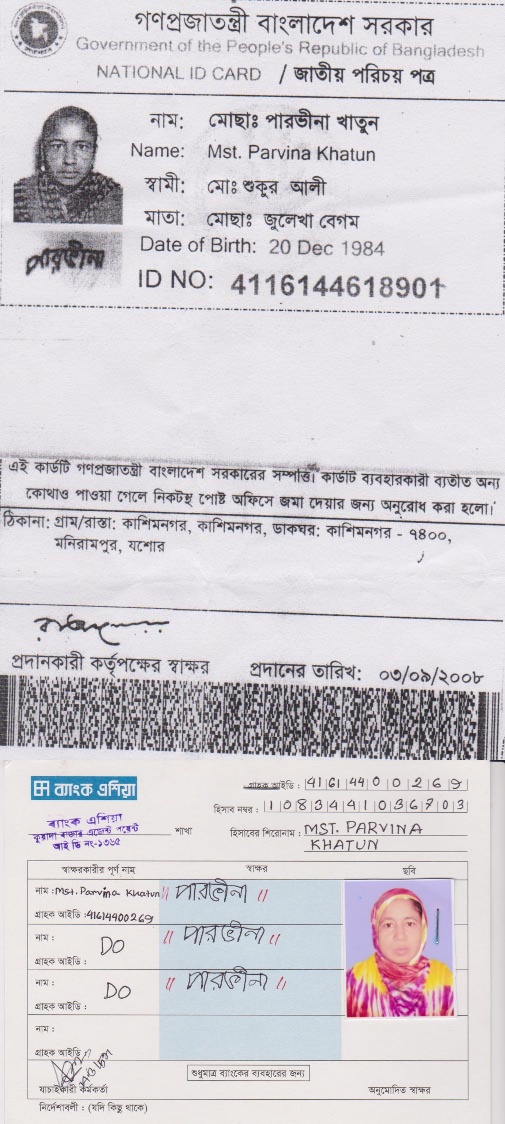 গণপ্রজাতন্ত্রী বাংলাদেশ সরকার
Government of the People's Republic of Bangladesh
NATIONAL ID CARD / জাতীয় পরিচয় পত্র
নাম: মোছাঃ পারভীনা খাতুন
Name: Mst. Parvina Khatun
স্বামী: মোঃ শুকুর আলী
মাতা: মোছাঃ জুলেখা বেগম
Date of Birth: 20 Dec 1984
পারভীনা
ID NO: 4116144618901
এই কার্ডটি গণপ্রজাতন্ত্রী বাংলাদেশ সরকারের সম্পত্তি। কার্ডটি ব্যবহারকারী ব্যতীত অন্য
কোথাও পাওয়া গেলে নিকটস্থ পোষ্ট অফিসে জমা দেয়ার জন্য অনুরোধ করা হলো।
ঠিকানা: গ্রাম/রাস্তা: কাশিমনগর, কাশিমনগর, ডাকঘর: কাশিমনগর - ৭৪০০,
মনিরামপুর, যশোর
প্রদানকারী কর্তৃপক্ষের স্বাক্ষর প্রদানের তারিখ: ০৩/০৯/২০০৮
ব্যাংক এশিয়া
গ্রাহক আইডি : 41614400269
হিসাব নম্বর : 1083441036703
ব্যাংক এশিয়া
বাজার এজেন্ট পয়েন্ট
আই ডি নং-১৩৬৫
শাখা
হিসাবের শিরোনাম : MST. PARVINA
KHATUN
স্বাক্ষরকারীর পূর্ণ নাম স্বাক্ষর ছবি
নাম : Mst. Parvina Khatun " পারভীনা "
গ্রাহক আইডি : 41614400269
নাম : DO " পারভীনা "
গ্রাহক আইডি :
নাম : DO " পারভীনা "
গ্রাহক আইডি :
নাম :
গ্রাহক আইডি :
শুধুমাত্র ব্যাংকের ব্যবহারের জন্য
যাচাইকারী কর্মকর্তা অনুমোদিত স্বাক্ষর
নির্দেশাবলী : (যদি কিছু থাকে)